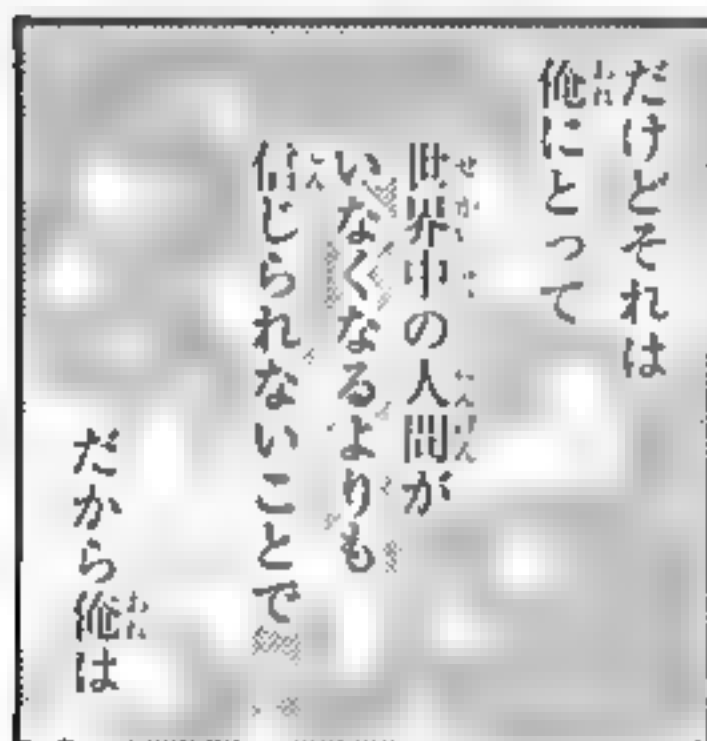 だけどそれは
俺にとって
世界中の人間が
いなくなるよりも
信じられないことで
だから俺は